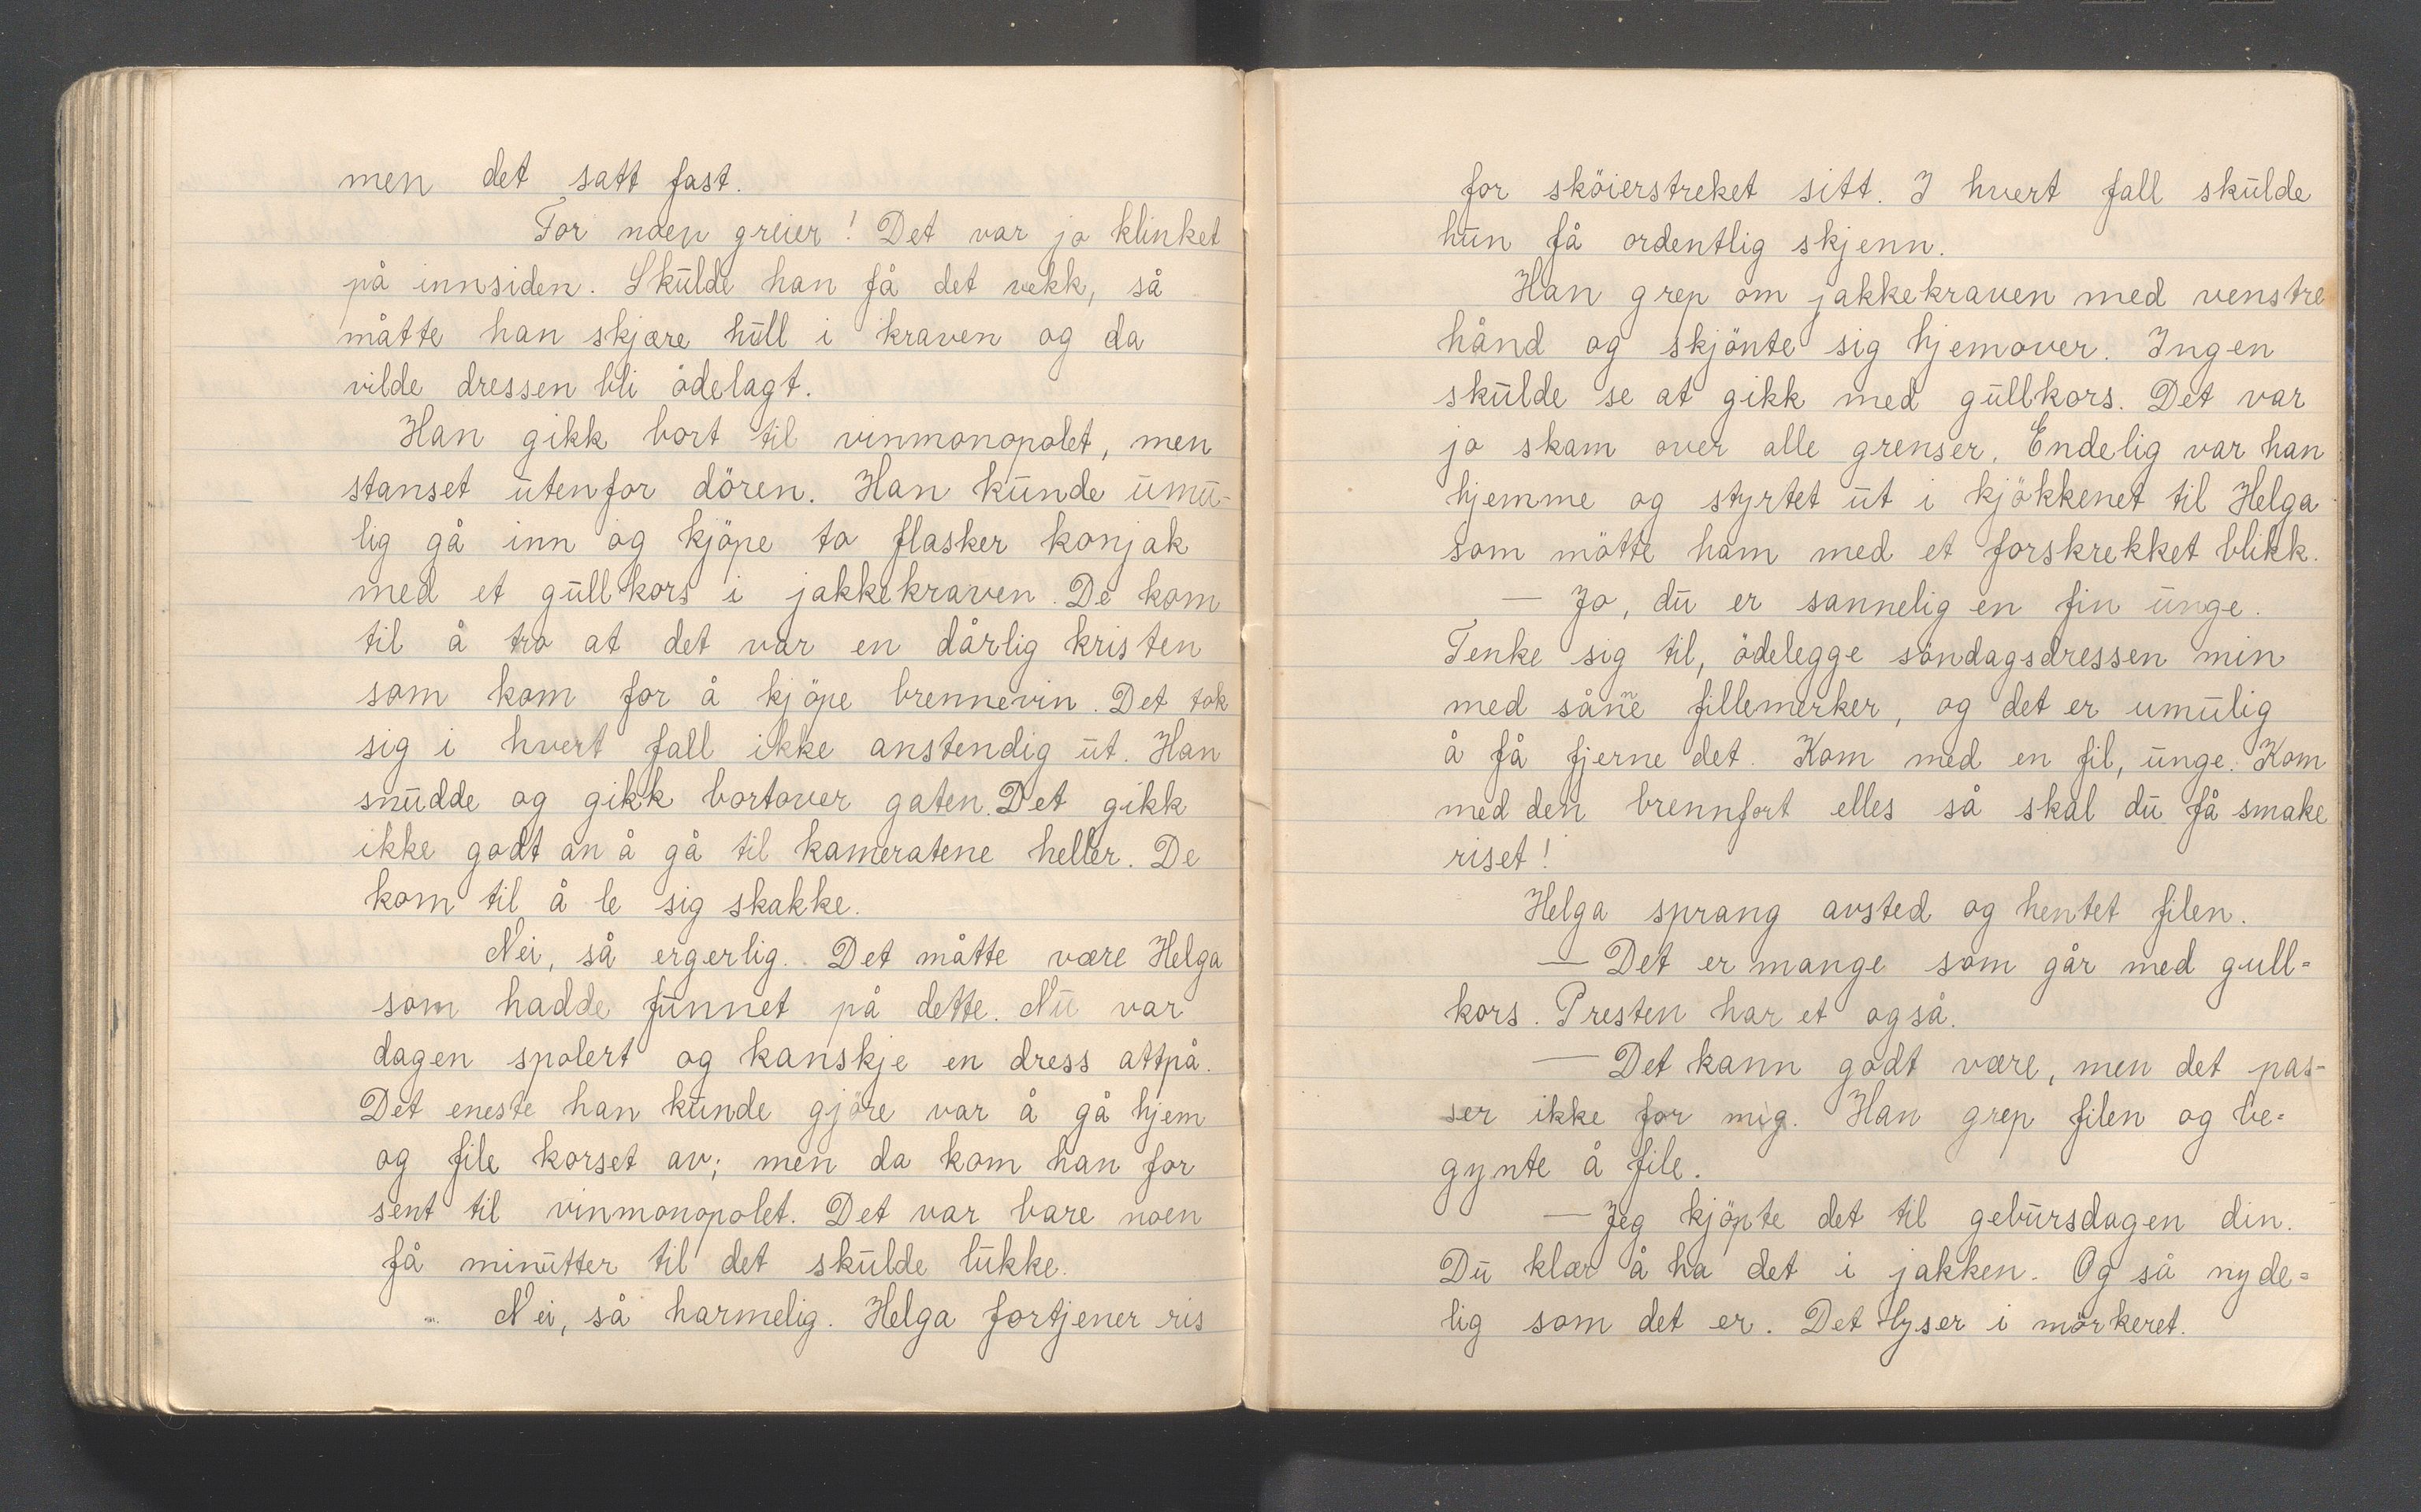 men det satt fast.
For noen greier! Det var jo klinket
på innsiden. Skulde han få det vekk, så
måtte han skjære hull i kraven og da
vilde dressen bli ödelagt.
Han gikk bort til vinmonopolet, men
stanset utenfor dören. Han kunde umu-
lig gå inn og kjöpe to flasker konjak
med et gullkors i jakkekraven. De kom
til å tro at det var en dårlig kristen
som kom for å kjöpe brennevin. Det tok
sig i hvert fall ikke anstendig ut. Han
snudde og gikk bortover gaten. Det gikk
ikke godt an å gå til kameratene heller. De
kom til å le sig skakke.
Nei, så ergerlig. Det måtte være Helga
som hadde funnet på dette. Nu var
dagen spolert og kanskje en dress attpå.
Det eneste han kunde gjöre var å gå hjem
og file korset av; men da kom han for
sent til vinmonopolet. Det var bare noen
få minutter til det skulde lukke.
Nei, så harmelig. Helga fortjener ris
for sköierstreket sitt. I hvert fall skulde
hun få ordentlig skjenn.
Han grep om jakkekraven med venstre
hånd og skjönte sig hjemover. Ingen
skulde se at gikk med gullkors. Det var
jo skam over alle grenser. Endelig var han
hjemme og styrtet ut i kjökkenet til Helga
som mötte ham med et forskrekket blikk.
— Jo, du er sannelig en fin unge.
Tenke sig til, ödelegge söndagsdressen min
med såne fillemerker, og det er umulig
å få fjerne det. Kom med en fil, unge. Kom
med den brennfort elles så skal du få smake
riset!
Helga sprang avsted og hentet filen.
— Det er mange som går med gull=
kors. Presten har et også.
— Det kann godt være, men det pas-
ser ikke for mig. Han grep filen og be=
gynte å file.
— Jeg kjöpte det til gebursdagen din.
Du klær å ha det i jakken. Og så nyde=
lig som det er. Det lyser i mörkeret.